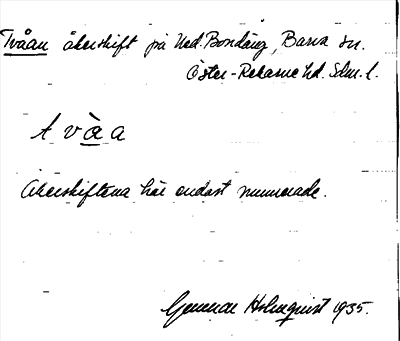 Tvåan åkerskift på Ned. Bondäng, Barva sn.
Öster-Rekarne hd. Sdm. l.
t v å a
Åkerskiftena här endast numrerade.
Gunnar Holmquist 1935.